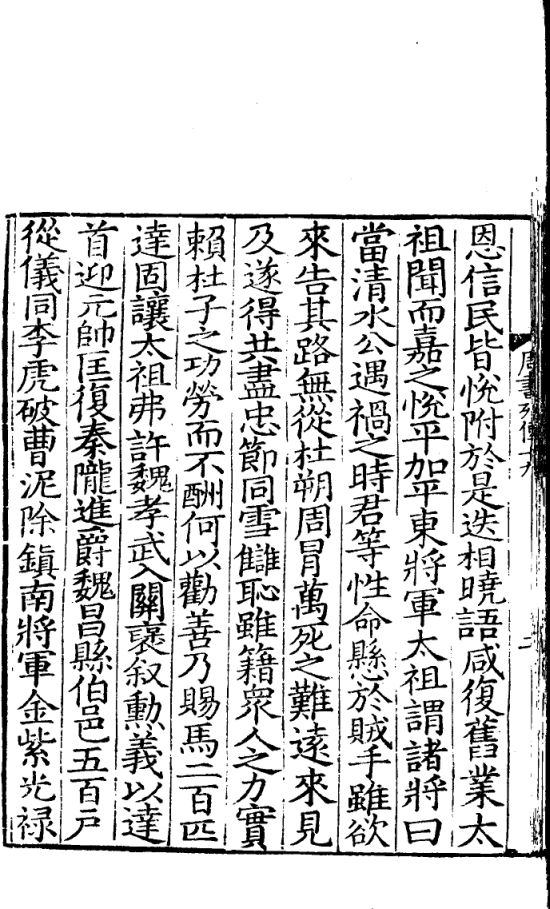 周書列傳十九
二
恩信民皆恱附於是迭相曉語咸復舊業太
祖聞而嘉之恱平加平東將軍太祖謂諸將曰
當清水公遇禍之時君等性命懸於賊手雖欲
來告其路無從杜朔周冐萬死之難遠來見
及遂得共盡忠節同雪讎恥雖籍衆人之力實
賴杜子之功勞而不酬何以勸善乃賜馬二百匹
達固讓太祖弗許魏孝武入關褒叙勲義以達
首迎元帥匡復秦隴進爵魏昌縣伯邑五百戸
從儀同李虎破曹泥除鎮南將軍金紫光禄